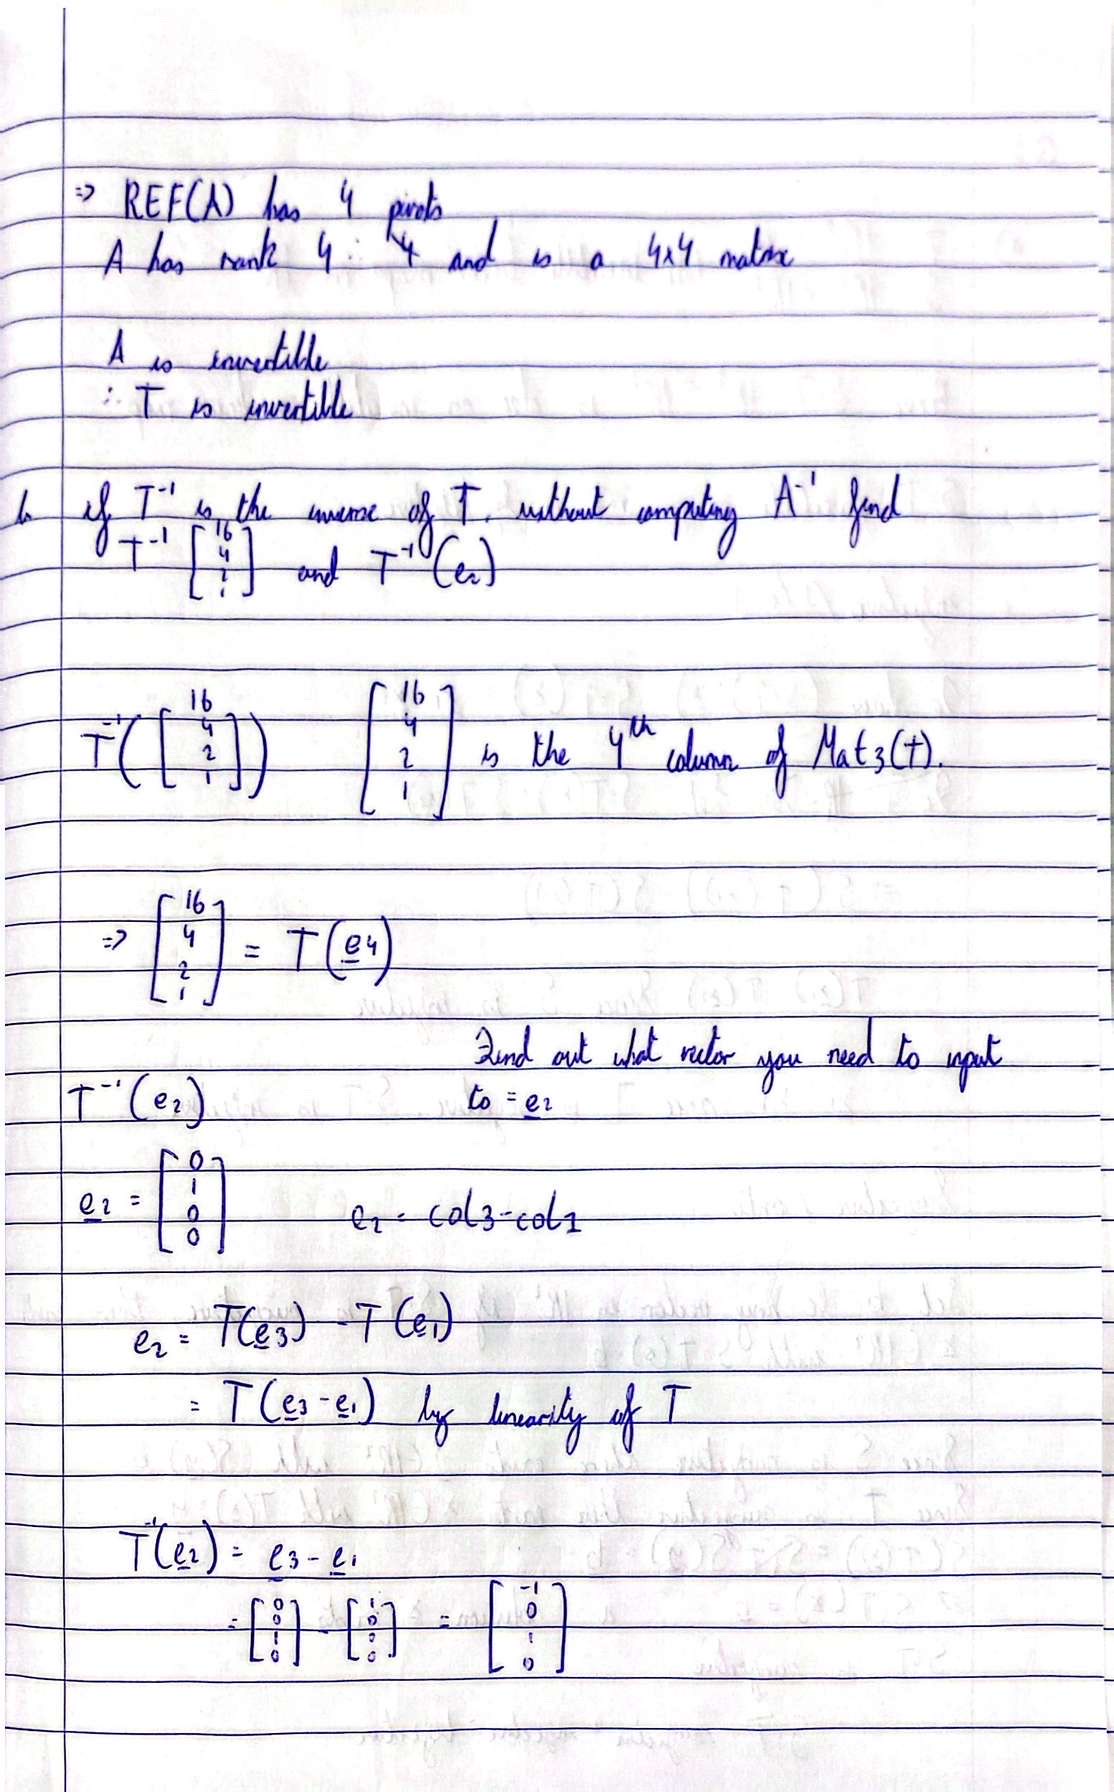 ⇒ REF(A) has 4 pivots
A has rank 4 ∴ 4 and is a 4x4 matrix
A is invertible
∴ T is invertible
b if T⁻¹ is the inverse of T, without computing A⁻¹ find
T⁻¹ [16 4 2 1] and T⁻¹(e₂)
T⁻¹([16 4 2 1]) [16 4 2 1] is the 4th column of Mat₃(T).
⇒ [16 4 2 1] = T(e₄)
Find out what vector you need to input
T⁻¹(e₂) to = e₂
e₂ = [0 1 0 0] e₂ = col3-col1
e₂ = T(e₃) - T(e₁)
= T(e₃ - e₁) by linearity of T
T⁻¹(e₂) = e₃ - e₁
= [0 0 1 0] - [1 0 0 0] = [-1 0 1 0]